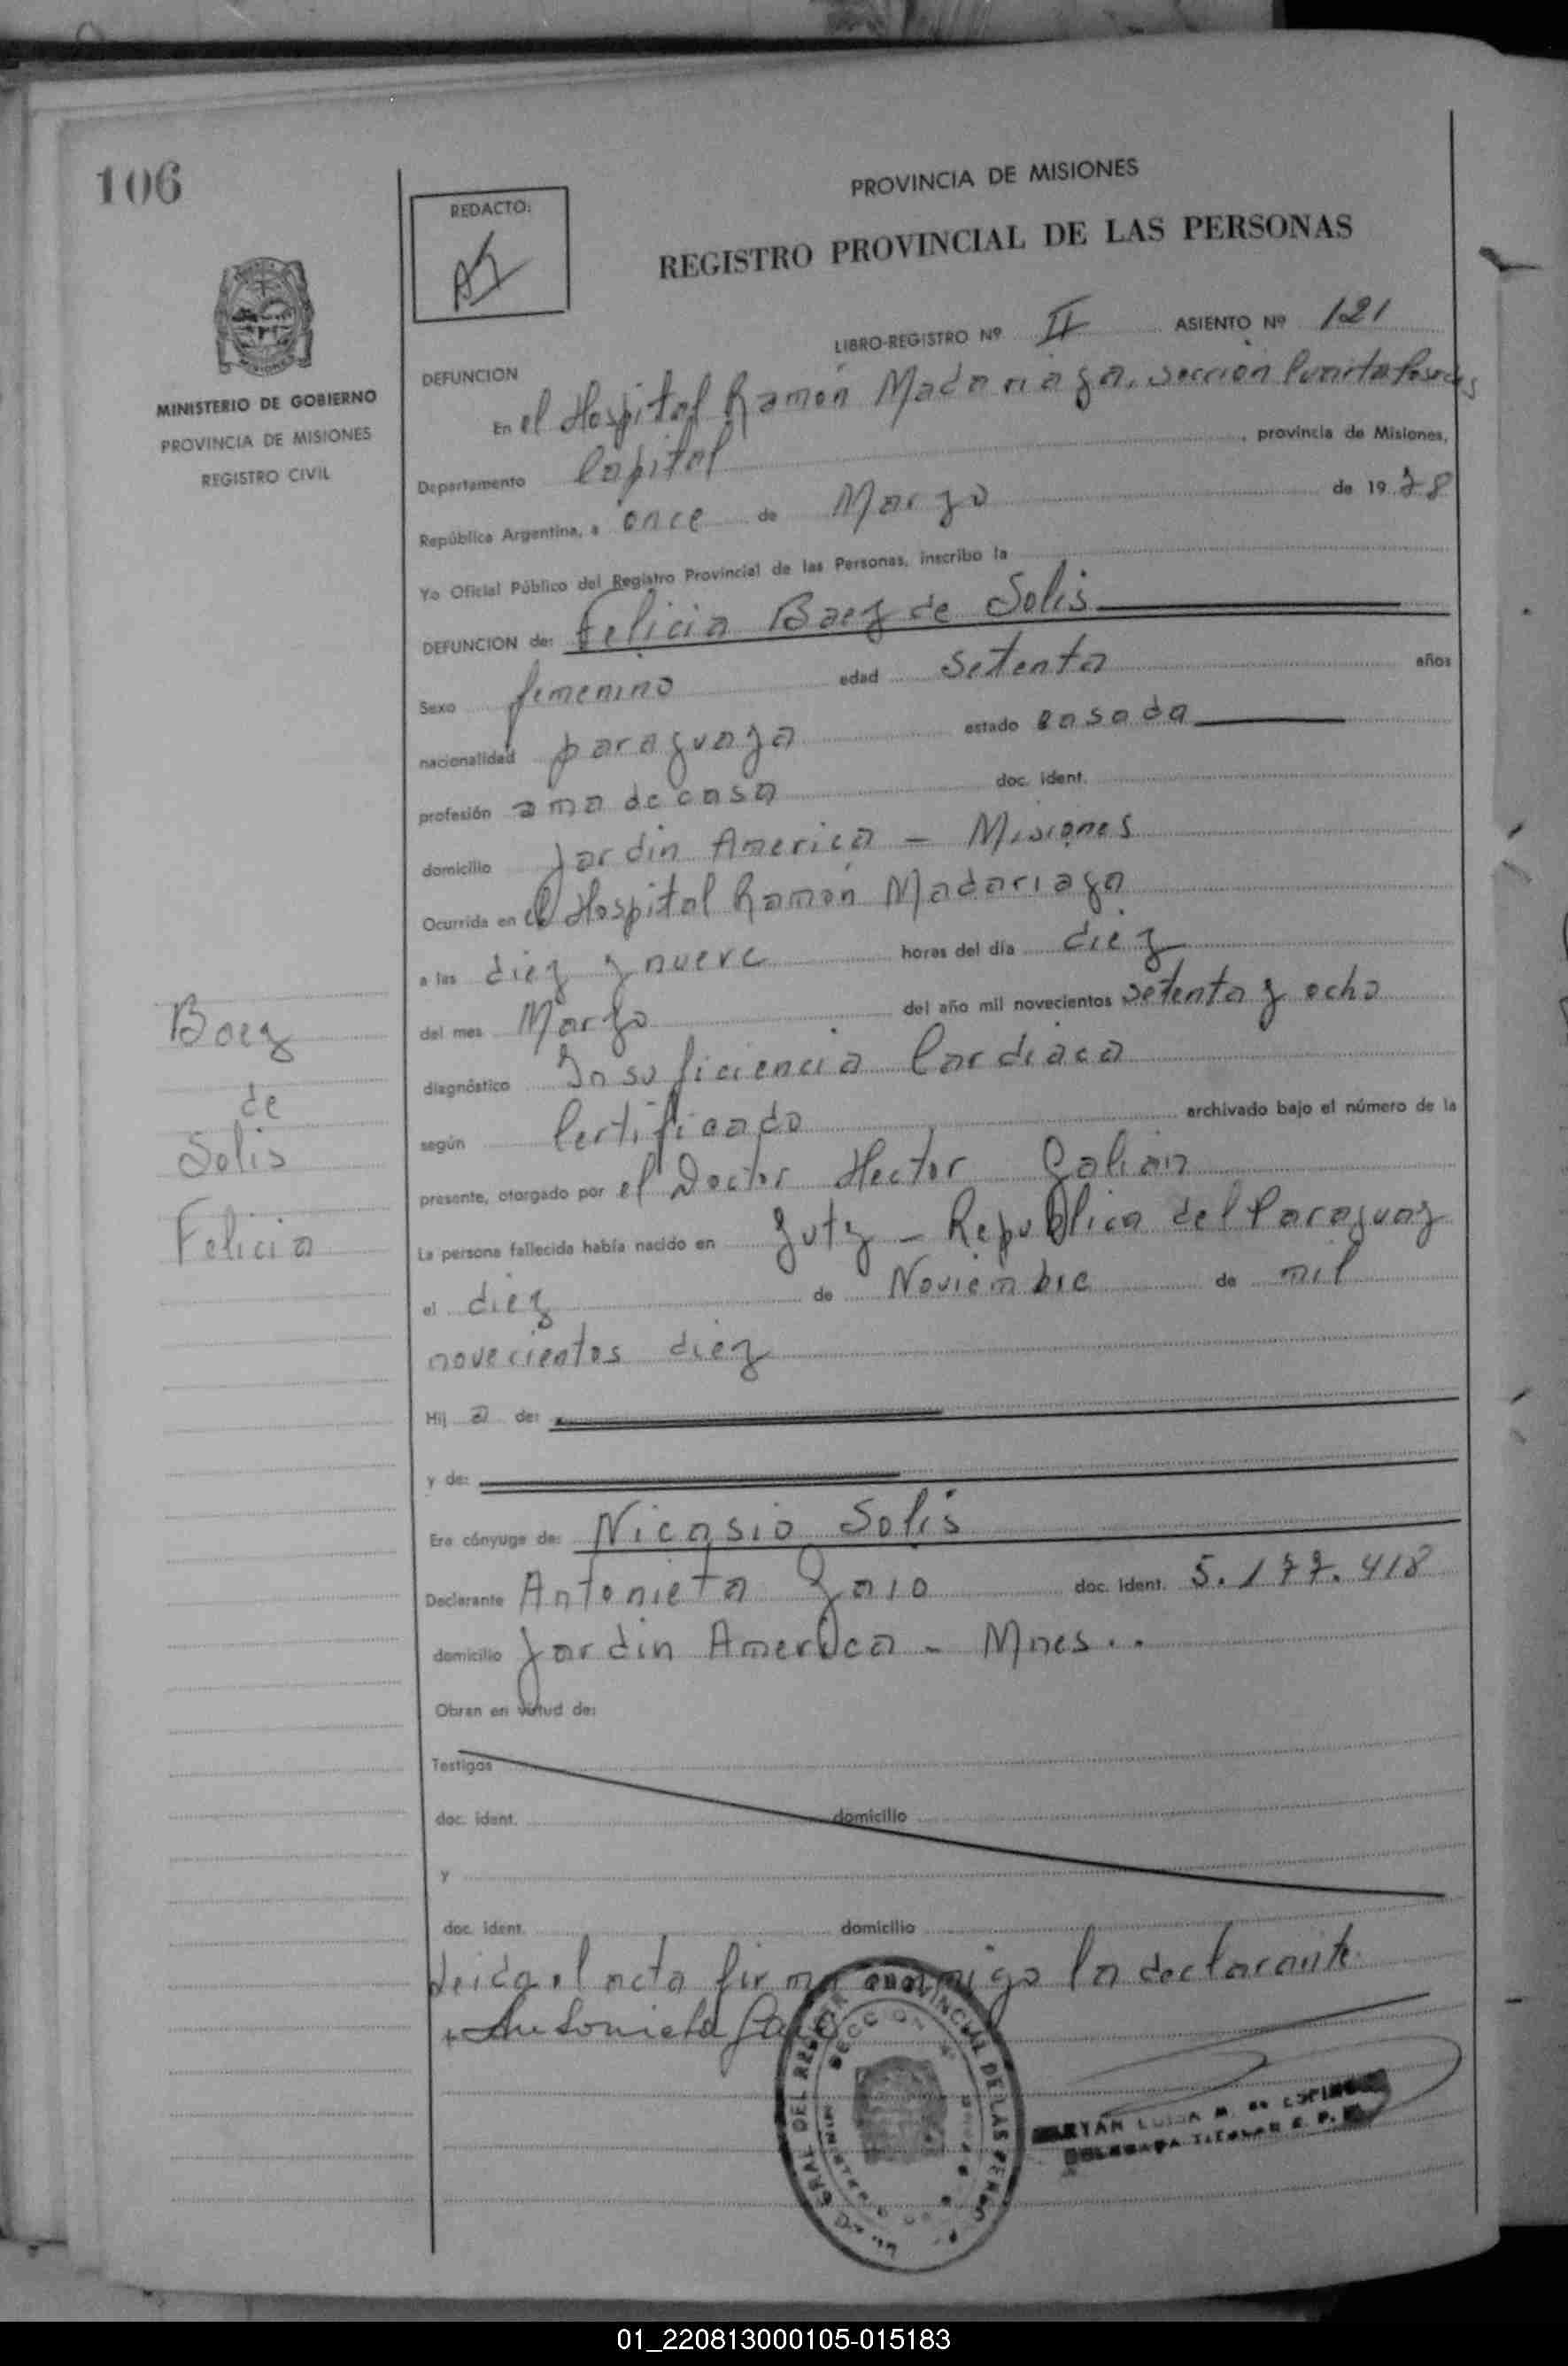 106
PROVINCIA DE MISIONES
REDACTO:
REGISTRO PROVINCIAL DE LAS PERSONAS
LIBRO-REGISTRO Nº II ASIENTO Nº 121
MINISTERIO DE GOBIERNO
PROVINCIA DE MISIONES
REGISTRO CIVIL
DEFUNCION
En el Hospital Ramón Madariaga, sección cuarta Posadas
Departamento Capital, provincia de Misiones,
República Argentina, a once de Marzo de 1978
Yo Oficial Público del Registro Provincial de las Personas, inscribo la
DEFUNCION de: Felicia Baez de Solis
Sexo femenino edad setenta años
nacionalidad paraguaya estado casada
profesión ama de casa doc. ident.
domicilio Jardin America - Misiones
Ocurrida en el Hospital Ramón Madariaga
a las diez y nueve horas del día diez
del mes Marzo del año mil novecientos setenta y ocho
diagnóstico Insuficiencia Cardiaca
según Certificado archivado bajo el número de la
presente, otorgado por el Doctor Hector Galian
La persona fallecida había nacido en Yuty - Republica del Paraguay
el diez de Noviembre de mil
novecientos diez
Hij a de:
y de:
Era cónyuge de: Nicasio Solis
Declarante Antonieta Gaio doc. ident. 5.177.418
domicilio Jardin America - Mnes..
Obran en virtud de:
Testigos
doc. ident. domicilio
y
doc. ident. domicilio
Leida el acta firma conmigo la declarante.
+ Antonieta Gaio
Baez
de
Solis
Felicia
PROVINCIAL DE LAS
SECCION
01_220813000105-015183